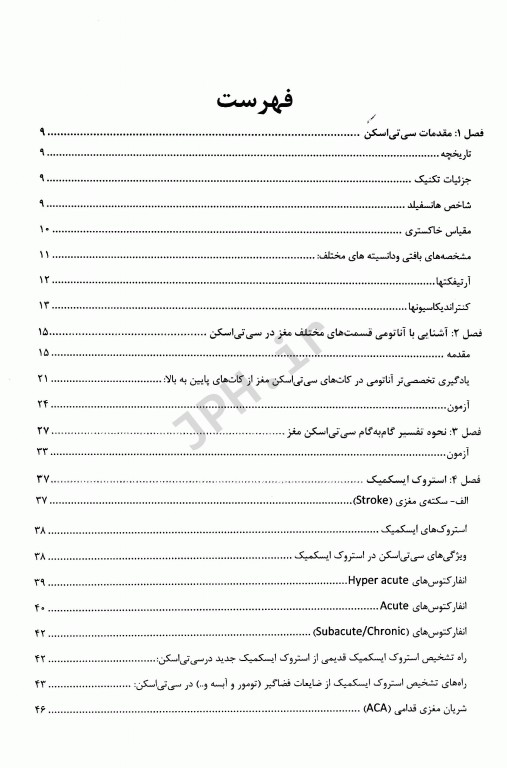 فهرست
فصل ۱: مقدمات سی‌تی‌اسکن ........ ۹
تاریخچه ........ ۹
جزئیات تکنیک ........ ۹
شاخص هانسفیلد ........ ۹
مقیاس خاکستری ........ ۱۰
مشخصه‌های بافتی ودانسیته های مختلف: ........ ۱۱
آرتیفکتها ........ ۱۲
کنتراندیکاسیونها ........ ۱۳
فصل ۲: آشنایی با آناتومی قسمت‌های مختلف مغز در سی‌تی‌اسکن ........ ۱۵
مقدمه ........ ۱۵
یادگیری تخصصی‌تر آناتومی در کات‌های سی‌تی‌اسکن مغز از کات‌های پایین به بالا: ........ ۲۱
آزمون ........ ۲۴
فصل ۳: نحوه تفسیر گام‌به‌گام سی‌تی‌اسکن مغز ........ ۲۷
آزمون ........ ۳۳
فصل ۴: استروک ایسکمیک ........ ۳۷
الف- سکته‌ی مغزی (Stroke) ........ ۳۷
استروک‌های ایسکمیک ........ ۳۸
ویژگی‌های سی‌تی‌اسکن در استروک ایسکمیک ........ ۳۸
انفارکتوس‌های Hyper acute ........ ۳۹
انفارکتوس‌های Acute ........ ۴۰
انفارکتوس‌های (Subacute/Chronic) ........ ۴۲
راه تشخیص استروک ایسکمیک قدیمی از استروک ایسکمیک جدید درسی‌تی‌اسکن: ........ ۴۲
راه‌های تشخیص استروک ایسکمیک از ضایعات فضاگیر (تومور و آبسه و..) در سی‌تی‌اسکن: ........ ۴۳
شریان مغزی قدامی (ACA) ........ ۴۶
JPH.ir